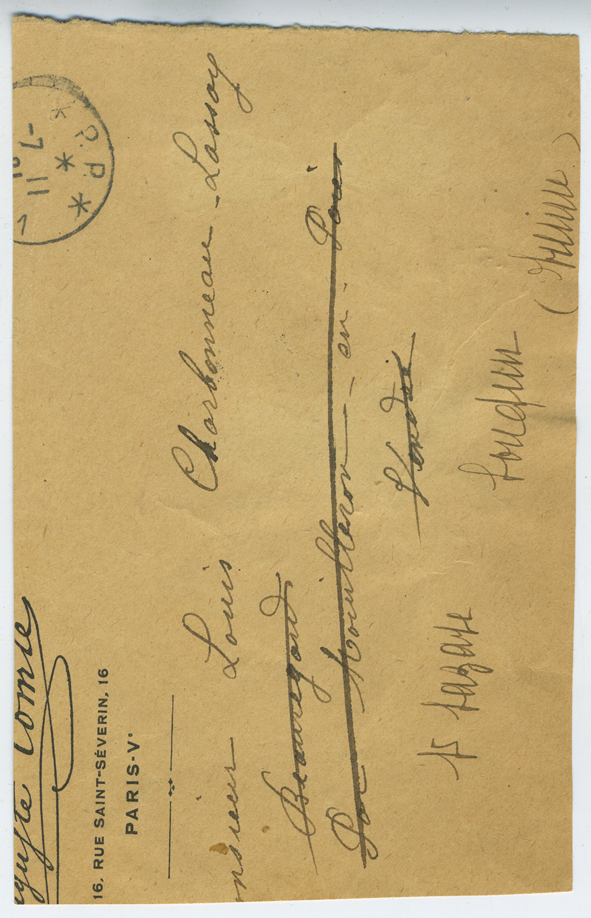 guste Comte
16, RUE SAINT-SÉVERIN, 16
PARIS-Vᵉ
P.P.
11
onsieur Louis Charbonneau-Lassay
Beauregard
Par Mouilleron-en-Pareds
Vendée
Loudun
(Vienne)